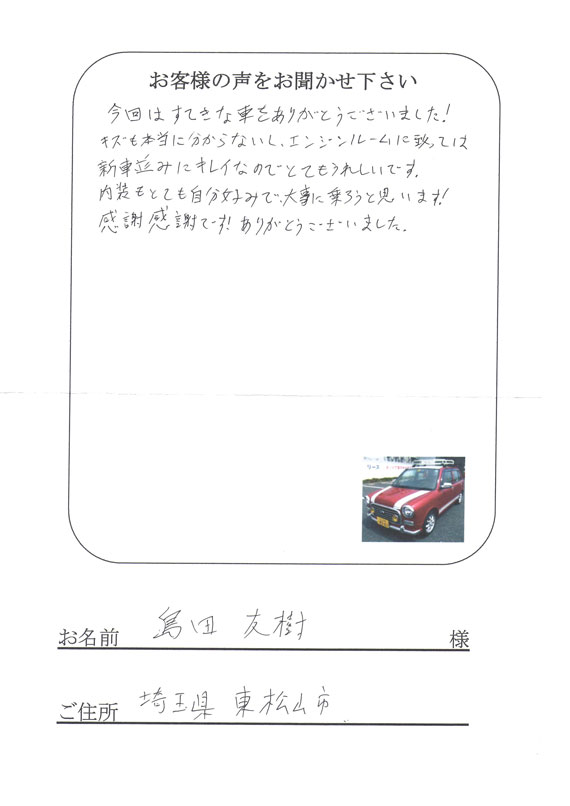 お客様の声をお聞かせ下さい
今回はすてきな車をありがとうございました!
キズも本当に分からないし、エンジンルームに致っては
新車並みにキレイなのでとてもうれしいです。
内装もとても自分好みで、大事に乗ろうと思います!
感謝感謝です!ありがとうございました。
お名前 島田 友樹 様
ご住所 埼玉県 東松山市